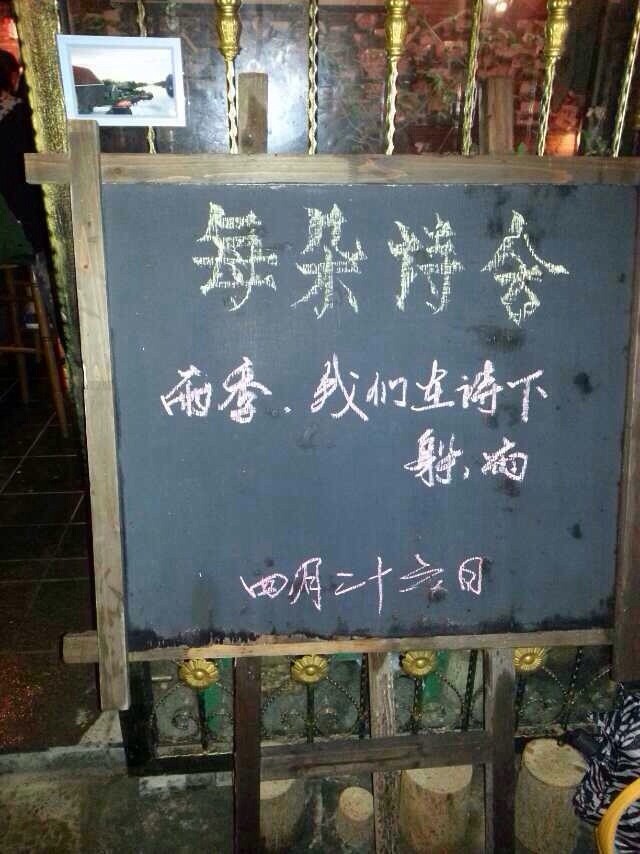 每朵诗舍
雨季、我们在诗下
躲、雨
四月二十六日